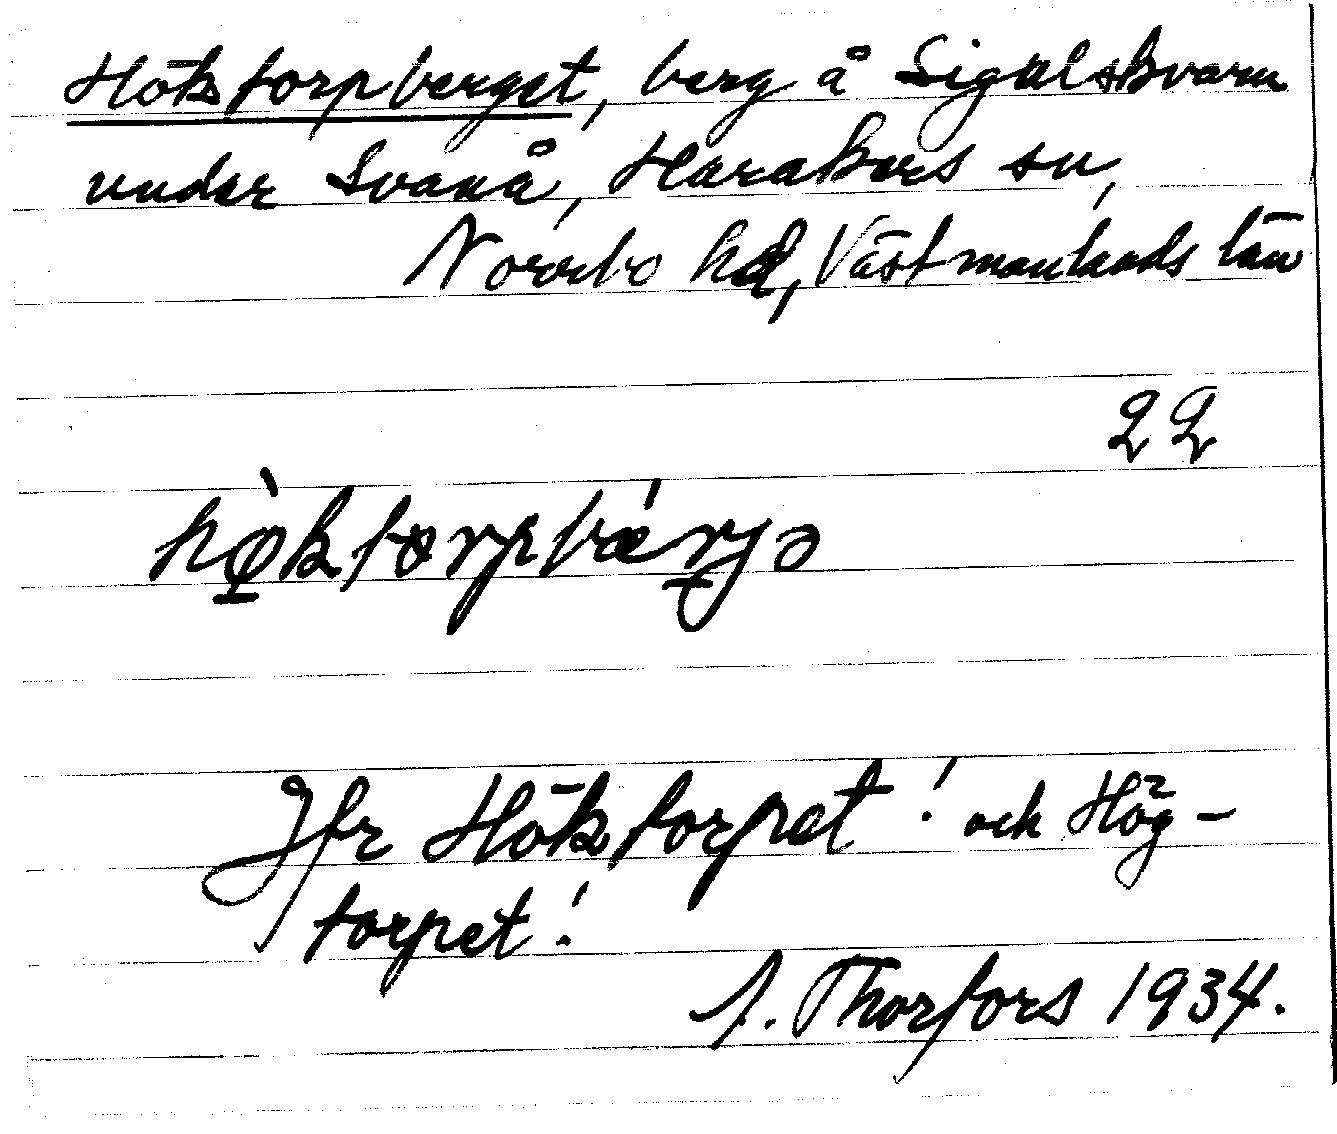 Hökstorpberget, berg å Sigdelskvarn
under Svanå, Harakers sn,
Norrbo hd, Västmanlands län
22
Jfr Hökstorpet! och Hög-
torpet!
A. Thorfors 1934.